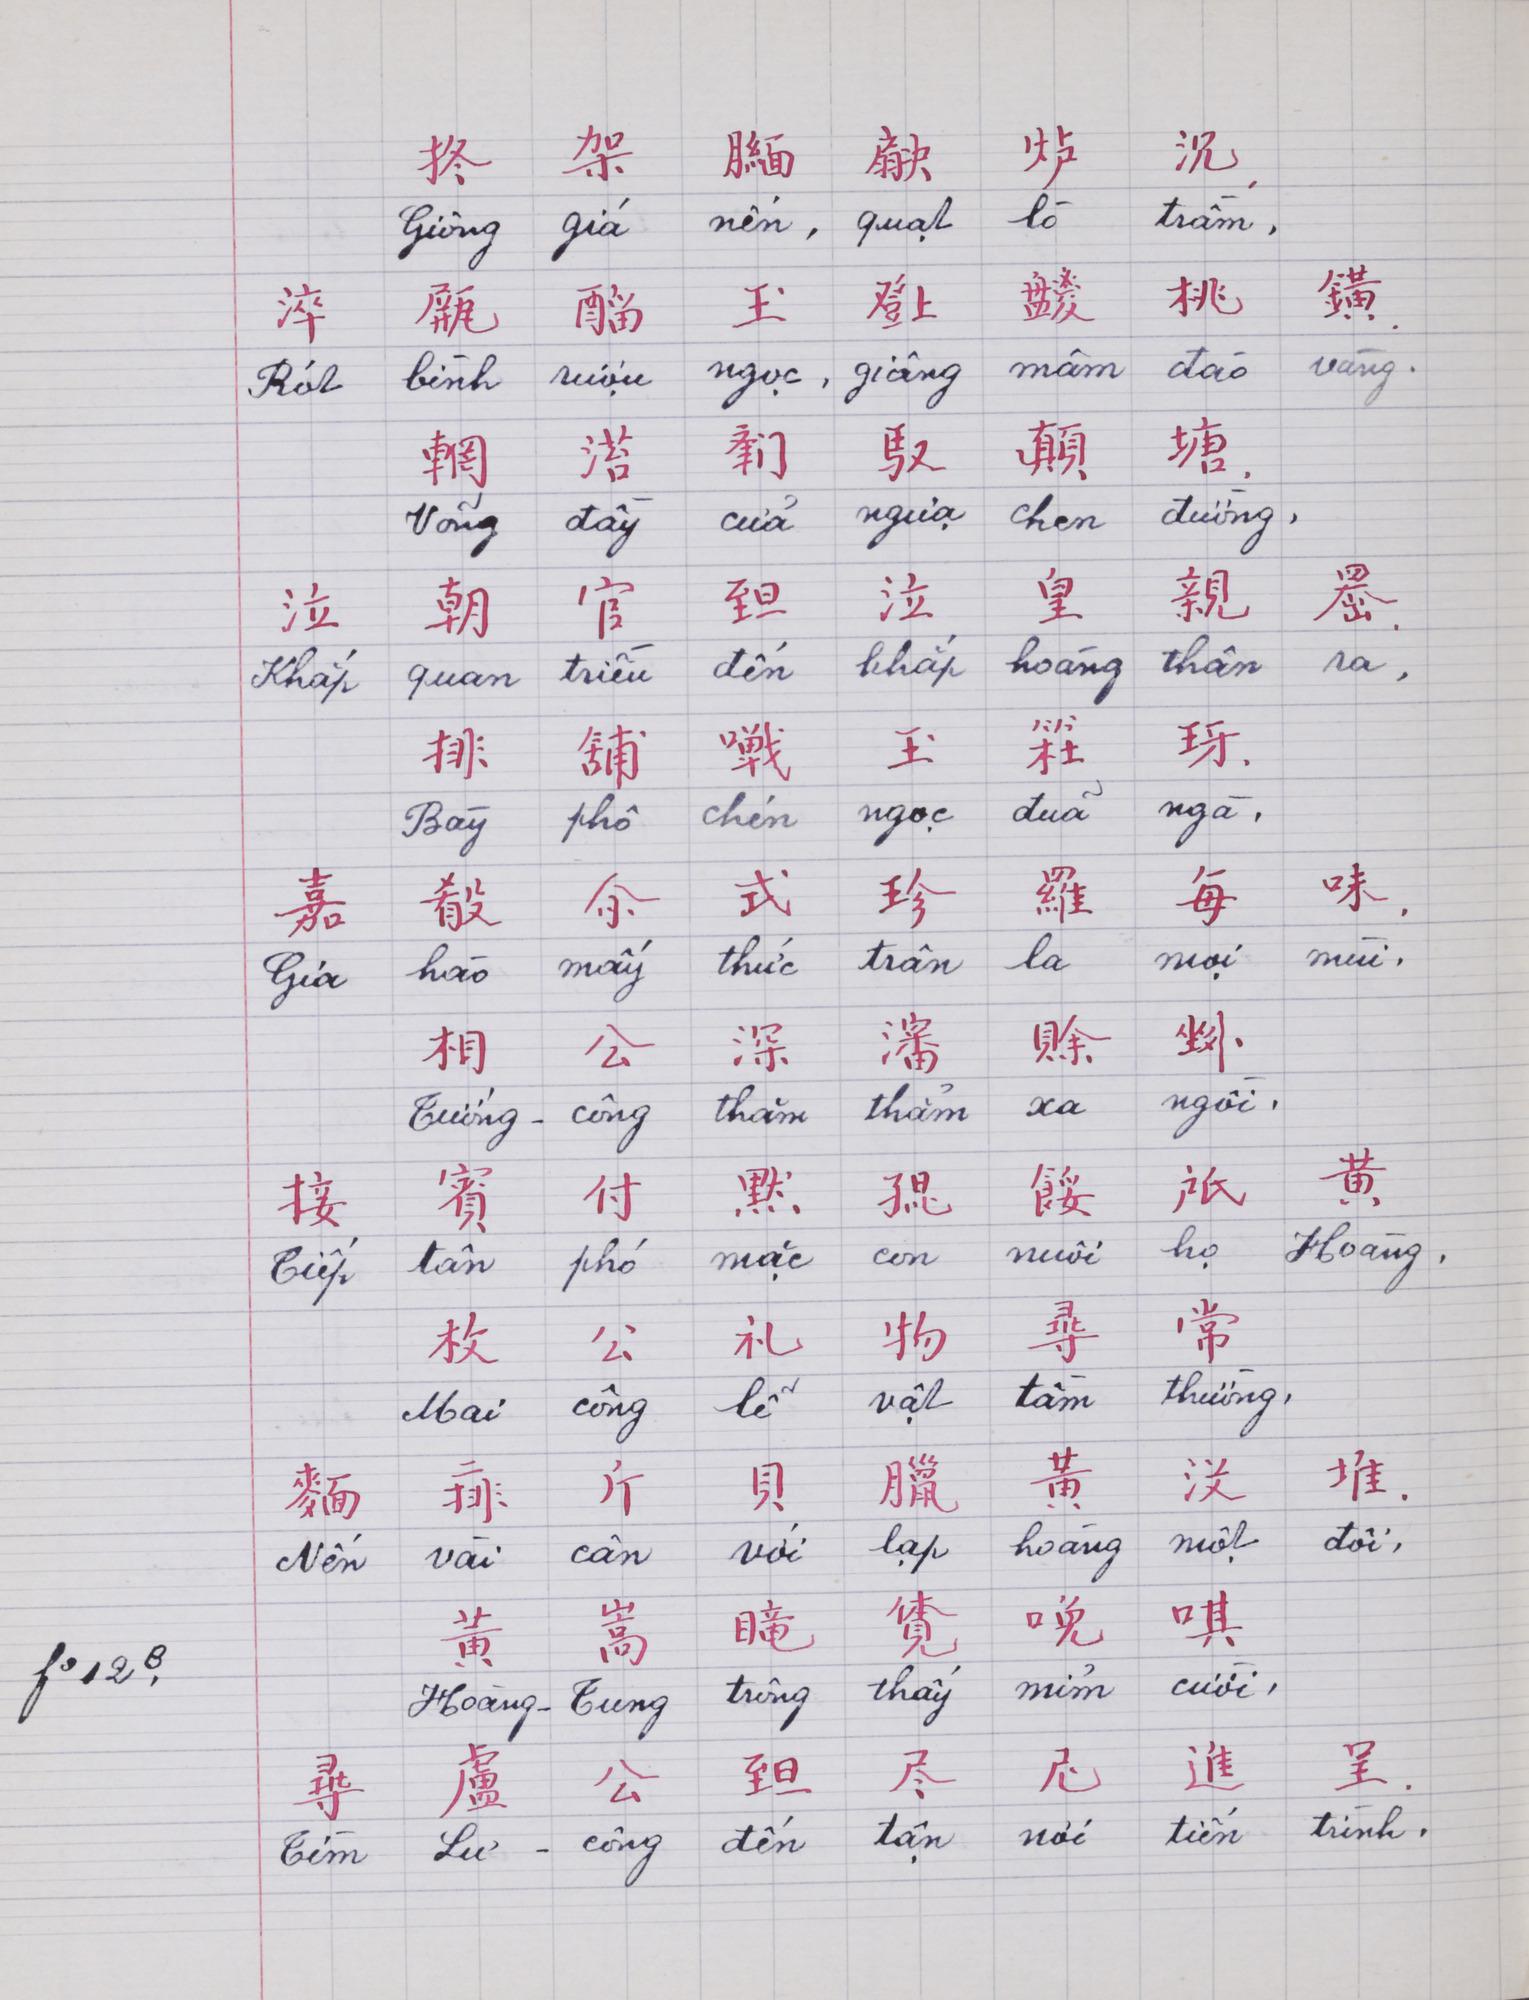 架 炉 沉
Giông giá nến, quạt lò trầm,
淬 瓶 玉 桃 鐄.
Rót bình rượu ngọc, giâng mâm đào vàng.
輞 馭 顛 塘.
Võng đầy cửa ngựa chen đường,
泣 朝 官 泣 皇 親
Khắp quan triều đến khắp hoàng thân ra,
排 舖 玉 玡.
Bày phô chén ngọc đuã ngà,
嘉 殽 尒 式 珍 羅 每 味.
Gia hào mấy thức trân la mọi mùi.
相 公 深 瀋 賒
Tướng-công thăm thẳm xa ngồi.
接 賓 付 默 餒 黄
Tiếp tân phó mặc con nuôi họ Hoàng,
枚 公 礼 物 尋 常
Mai công lễ vật tầm thường,
斤 貝 臘 黄 堆.
Nến vài cân với lạp hoàng một đôi,
黄 嵩 唭
f° 12 B.
Hoàng-Tung trông thấy mỉm cười,
尋 盧 公 尽 尼 進 呈.
Tìm Lư-công đến tận nơi tiến trình.